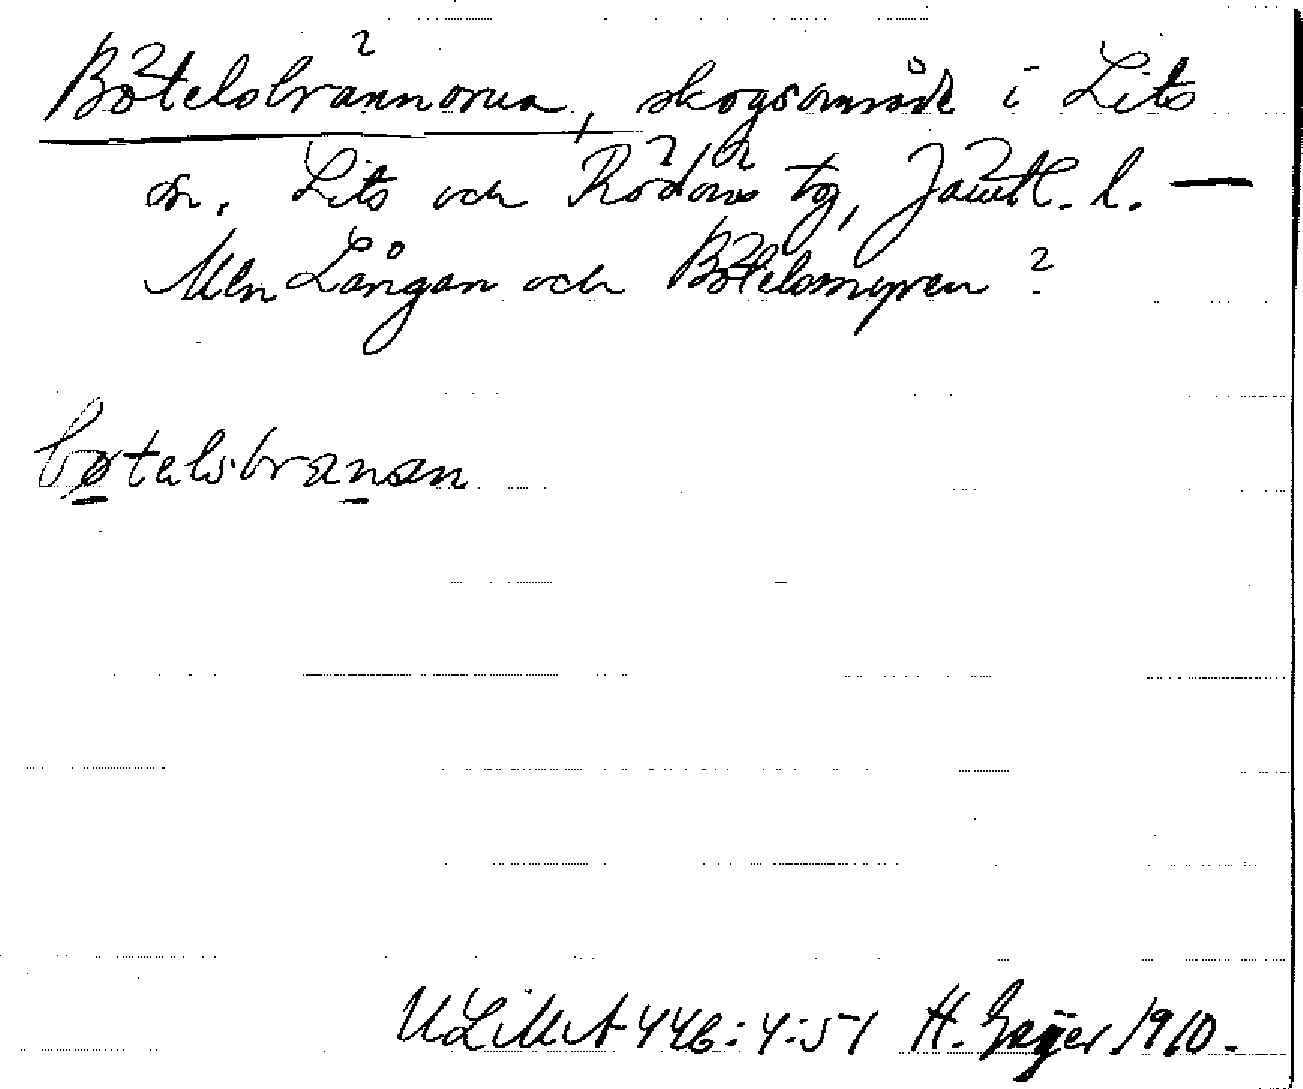 Bötelsbrännorna, skogsområde i Lits
sn. Lits och Rödöns tg, Jämtl. l. —
Mln Långan och Bötelsmyren?
bøtelsbranan
ULMA 446:4:51 H. Geijer 1910.